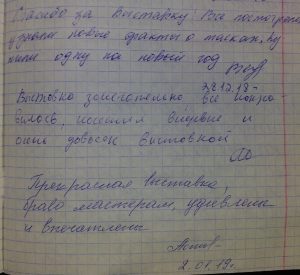 Спасибо за выставку. Все посмотрели
узнали новые факты о мишках. Ку
пили одну на новый год
31.12.18-
Выставка замечательно все понра
вилось, посетили впервые и
очень довольны выставкой
Прекрасная выставка,
браво мастерам, удивлены
и впечатлены
2.01.19.